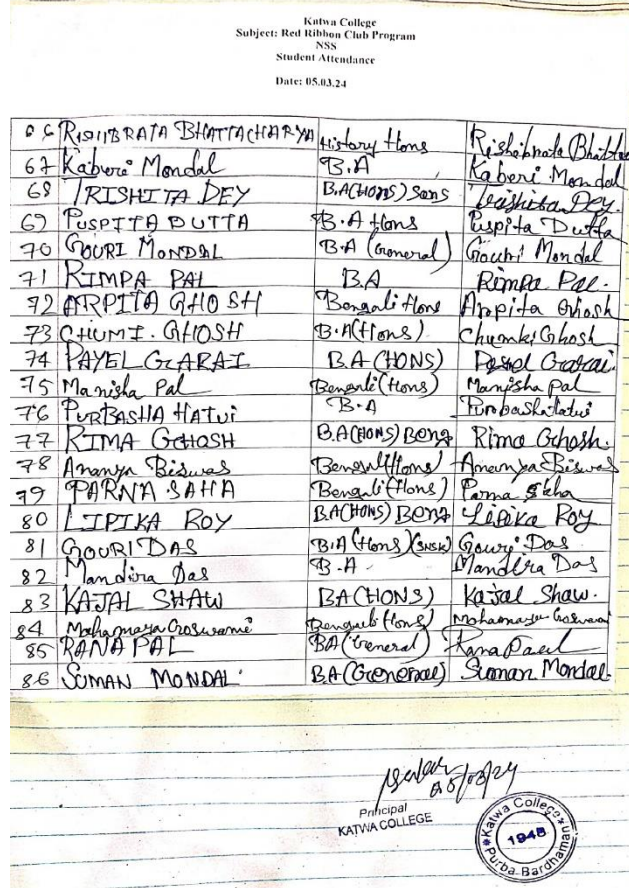 Katwa College
Subject: Red Ribbon Club Program
NSS
Student Attendance
Date: 05.03.24
66 RISHIBRATA BHATTACHARYA History Hons Rishibrata Bhatta
67 Kaberi Mondal B.A Kaberi Mondal
68 TRISHITA DEY B.A(HONS) Sans Trishita Dey.
69 PUSPITA DUTTA B.A Hons Puspita Dutta
70 GOURI MONDAL B.A (General) Gouri Mondal
71 RIMPA PAL B.A Rimpa Pal.
72 ARPITA GHOSH Bengali Hons Arpita Ghosh
73 CHUMKI GHOSH B.A(Hons) Chumki Ghosh
74 PAYEL GARAI B.A (HONS) Payel Garai.
75 Manisha Pal Bengali (Hons) Manisha Pal
76 PURBASHA HATUI B.A Purbasha Hatui
77 RIMA GHOSH B.A(HONS) Beng Rima Ghosh.
78 Ananya Biswas Bengali(Hons) Ananya Biswas
79 PARNA SAHA Bengali (Hons) Parna Saha
80 LIPIKA ROY B.A(HONS) Beng Lipika Roy
81 GOURI DAS B.A (Hons) (SNSK) Gouri Das
82 Mandira Das B.A Mandira Das
83 KAJAL SHAW B.A(HONS) Kajal Shaw.
84 Mahamaya Goswami Bengali (Hons) Mahamaya Goswami
85 RANA PAL BA (General) Rana Paul
86 SUMAN MONDAL. B.A (General) Suman Mondal.
05/03/24
Principal
KATWA COLLEGE
Katwa College
1948
Purba Bardhaman